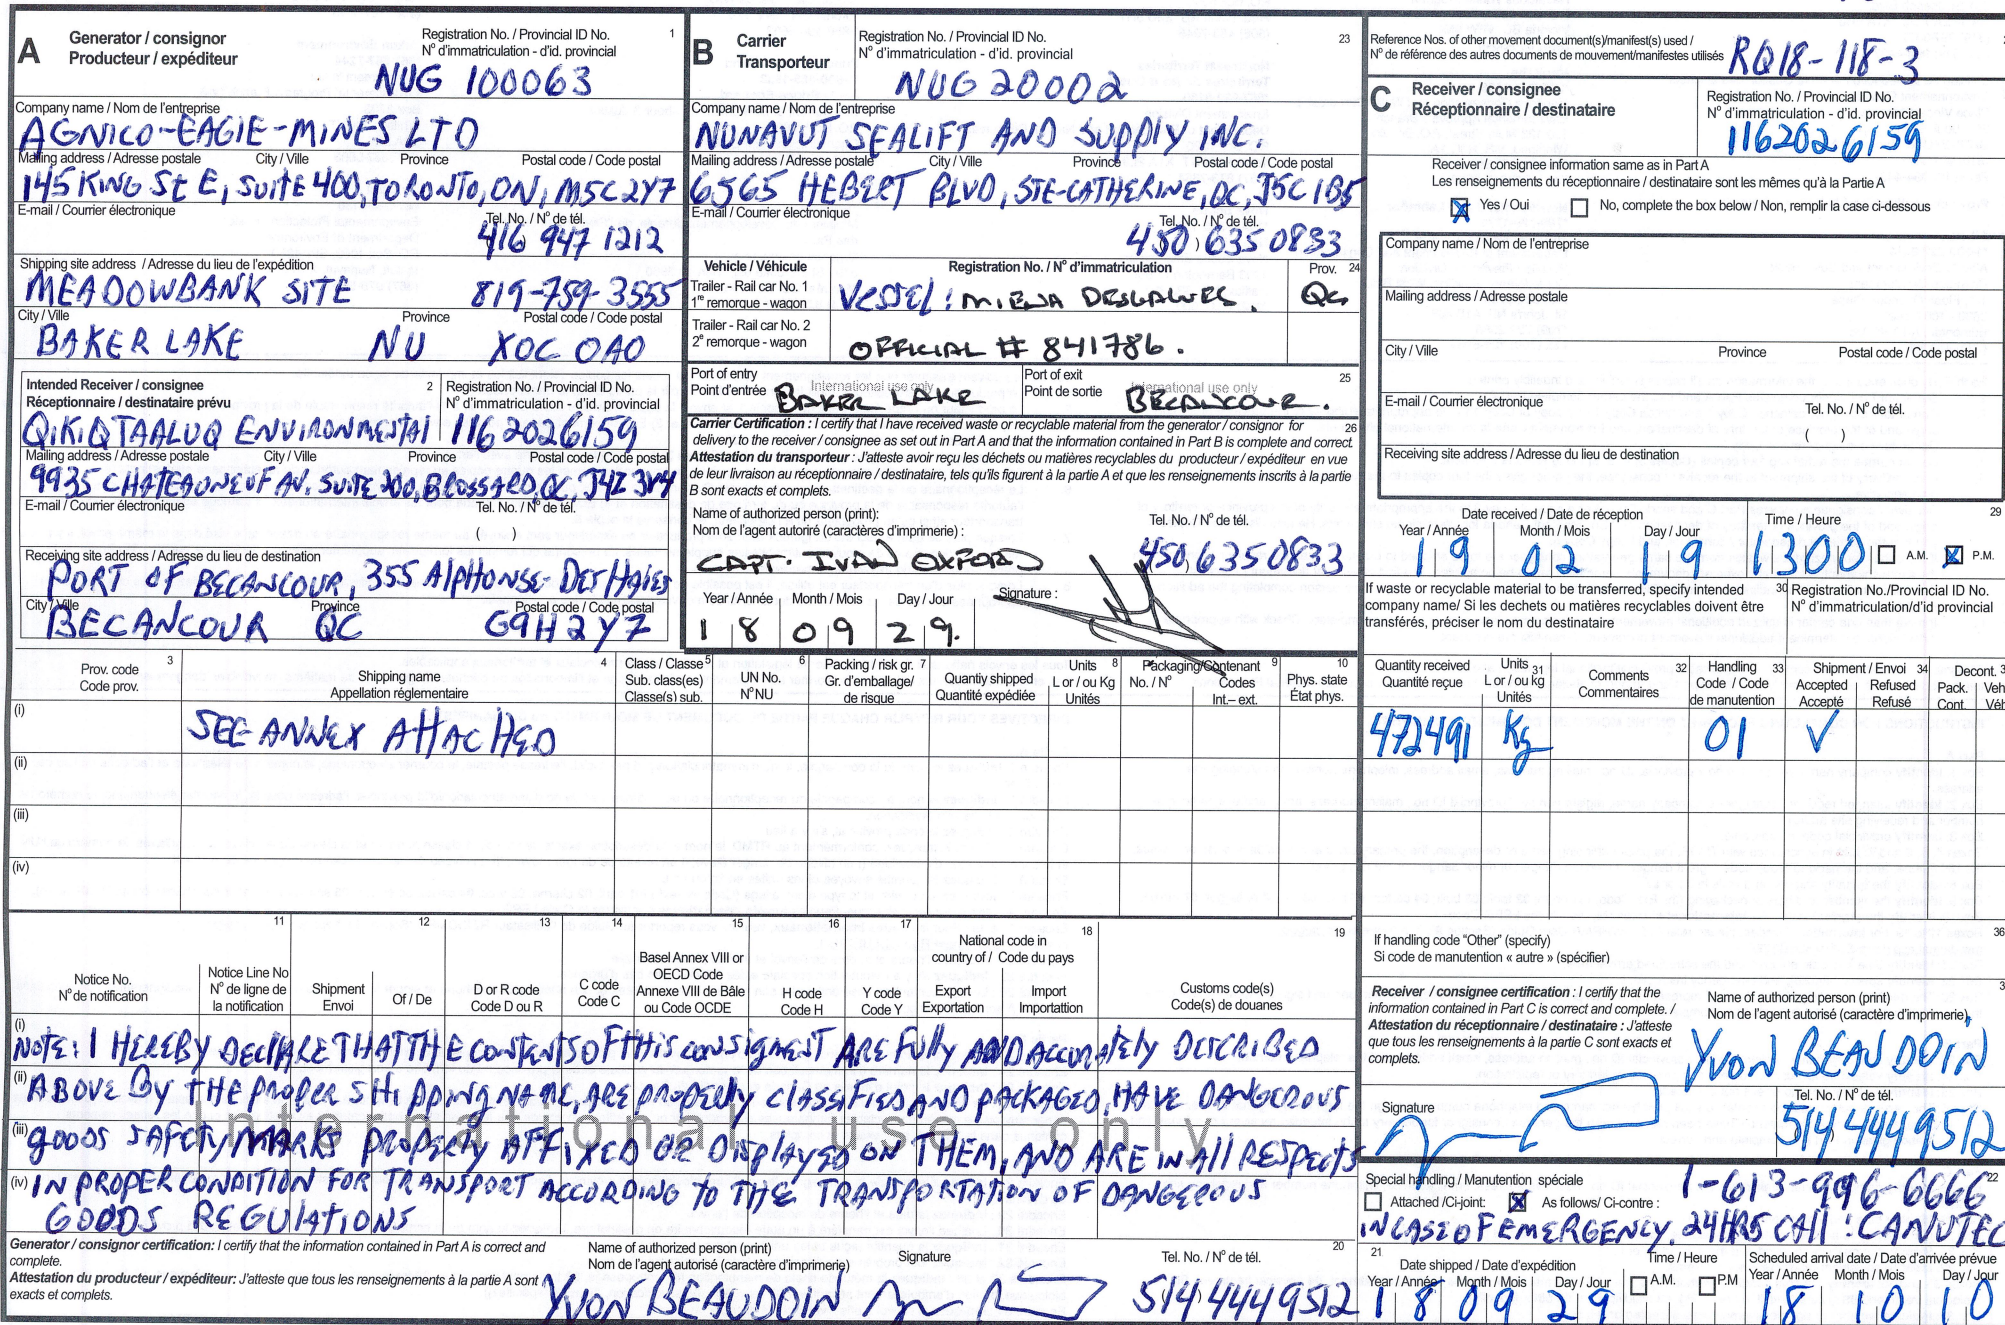 A Generator / consignor
Producteur / expéditeur
Registration No. / Provincial ID No.
N° d'immatriculation - d'id. provincial
1
NUG 100063
Company name / Nom de l'entreprise
AGNICO-EAGlE-MINES LTD
Mailing address / Adresse postale City / Ville Province Postal code / Code postal
145 KING St E, SUITE 400, TORONTO, ON, M5C 2Y7
E-mail / Courrier électronique
Tel. No. / N° de tél.
416 947 1212
Shipping site address / Adresse du lieu de l'expédition
MEADOWBANK SITE 819-759-3555
City / Ville Province Postal code / Code postal
BAKER LAKE NU XOC OAO
Intended Receiver / consignee
Réceptionnaire / destinataire prévu
2
Registration No. / Provincial ID No.
N° d'immatriculation - d'id. provincial
QIKIQTAALUQ ENVIRONMENTAl 1162026159
Mailing address / Adresse postale City / Ville Province Postal code / Code postal
9935 CHATEAUNEUF AV. SUITE 200, BROSSARD, QC, J4Z 3V4
E-mail / Courrier électronique
Tel. No. / N° de tél.
( )
Receiving site address / Adresse du lieu de destination
PORT OF BECANCOUR, 355 AlPHONSE-DESHAIES
City / Ville Province Postal code / Code postal
BECANCOUR QC G9H 2Y7
B Carrier
Transporteur
Registration No. / Provincial ID No.
N° d'immatriculation - d'id. provincial
23
NUG 20002
Company name / Nom de l'entreprise
NUNAVUT SEALIFT AND SUPPlY INC.
Mailing address / Adresse postale City / Ville Province Postal code / Code postal
6565 HEBERT BLVD, STE-CATHERINE, QC, J5C 1B5
E-mail / Courrier électronique
Tel. No. / N° de tél.
450) 635 0833
Vehicle / Véhicule Registration No. / N° d'immatriculation Prov. 24
Trailer - Rail car No. 1
1re remorque - wagon
VESSEl : MIENA DESGAGNES. QC
Trailer - Rail car No. 2
2e remorque - wagon
OFFICIAL # 841786.
Port of entry
Point d'entrée
International use only
BAKER LAKE
Port of exit
Point de sortie
International use only
BECANCOUR.
25
Carrier Certification : I certify that I have received waste or recyclable material from the generator / consignor for 26
delivery to the receiver / consignee as set out in Part A and that the information contained in Part B is complete and correct.
Attestation du transporteur : J'atteste avoir reçu les déchets ou matières recyclables du producteur / expéditeur en vue
de leur livraison au réceptionnaire / destinataire, tels qu'ils figurent à la partie A et que les renseignements inscrits à la partie
B sont exacts et complets.
Name of authorized person (print):
Nom de l'agent autorié (caractères d'imprimerie) :
Tel. No. / N° de tél.
CAPT. IVAN OXFORD 450, 635 0833
Year / Année Month / Mois Day / Jour Signature :
18 09 29.
Reference Nos. of other movement document(s)/manifest(s) used /
N° de référence des autres documents de mouvement/manifestes utilisés
RQ18-118-3
C Receiver / consignee
Réceptionnaire / destinataire
Registration No. / Provincial ID No.
N° d'immatriculation - d'id. provincial
1162026159
Receiver / consignee information same as in Part A
Les renseignements du réceptionnaire / destinataire sont les mêmes qu'à la Partie A
Yes / Oui No, complete the box below / Non, remplir la case ci-dessous
Company name / Nom de l'entreprise
Mailing address / Adresse postale
City / Ville Province Postal code / Code postal
E-mail / Courrier électronique Tel. No. / N° de tél.
( )
Receiving site address / Adresse du lieu de destination
Date received / Date de réception Time / Heure 29
Year / Année Month / Mois Day / Jour
19 02 19 1300 A.M. P.M.
If waste or recyclable material to be transferred, specify intended
company name/ Si les dechets ou matières recyclables doivent être
transférés, préciser le nom du destinataire
30 Registration No./Provincial ID No.
N° d'immatriculation/d'id provincial
Prov. code
Code prov.
3
Shipping name
Appellation réglementaire
4
Class / Classe 5
Sub. class(es)
Classe(s) sub.
UN No.
N° NU
6
Packing / risk gr. 7
Gr. d'emballage/
de risque
Quantiy shipped
Quantité expédiée
Units 8
L or / ou Kg
Unités
Packaging/Contenant 9
No. / N° Codes
Int.– ext.
10
Phys. state
État phys.
Quantity received
Quantité reçue
Units 31
L or / ou kg
Unités
Comments 32
Commentaires
Handling 33
Code / Code
de manutention
Shipment / Envoi 34
Accepted Refused
Accepté Refusé
Decont. 3
Pack. Veh
Cont. Véh
(i) SEE ANNEX ATTACHED 472491 Kg 01 ✓
(ii)
(iii)
(iv)
11 12 13 14 15 16 17 18 19
Notice No.
N° de notification
Notice Line No
N° de ligne de
la notification
Shipment
Envoi
Of / De
D or R code
Code D ou R
C code
Code C
Basel Annex VIII or
OECD Code
Annexe VIII de Bâle
ou Code OCDE
H code
Code H
Y code
Code Y
National code in
country of / Code du pays
Export Import
Exportation Importattion
Customs code(s)
Code(s) de douanes
International use only
(i) NOTE: I HEREBY DEClARE THAT THE CONTENTS OF THIS CONSIGMENT ARE FUlly AND ACCURATELY DESCRIBED
(ii) ABOVE BY THE PROPER SHIPPING NAME, ARE PROPERLY ClASSIFIED AND PACKAGED, HAVE DANGEROUS
(iii) GOODS SAFETY MARKS PROPERLY AFFIXED OR DISPLAYED ON THEM, AND ARE IN All RESPECTS
(iv) IN PROPER CONDITION FOR TRANSPORT ACCORDING TO THE TRANSPORTATION OF DANGEROUS
GOODS REGULATIONS
Generator / consignor certification: I certify that the information contained in Part A is correct and
complete.
Attestation du producteur / expéditeur: J'atteste que tous les renseignements à la partie A sont
exacts et complets.
Name of authorized person (print)
Nom de l'agent autorisé (caractère d'imprimerie)
Signature
Tel. No. / N° de tél.
20
YVON BEAUDOIN 514 444 9512
36
If handling code "Other" (specify)
Si code de manutention « autre » (spécifier)
Receiver / consignee certification : I certify that the
information contained in Part C is correct and complete. /
Attestation du réceptionnaire / destinataire : J'atteste
que tous les renseignements à la partie C sont exacts et
complets.
Name of authorized person (print)
Nom de l'agent autorisé (caractère d'imprimerie)
3
YVON BEAUDOIN
Signature
Tel. No. / N° de tél.
514 444 9512
Special handling / Manutention spéciale 22
Attached /Ci-joint: As follows/ Ci-contre :
1-613-996-6666
IN CASE OF EMERGENCY. 24 HRS CAll : CANUTEC
21 Date shipped / Date d'expédition Time / Heure Scheduled arrival date / Date d'arrivée prévue
Year / Année Month / Mois Day / Jour A.M. P.M Year / Année Month / Mois Day / Jour
18 09 29 18 10 10